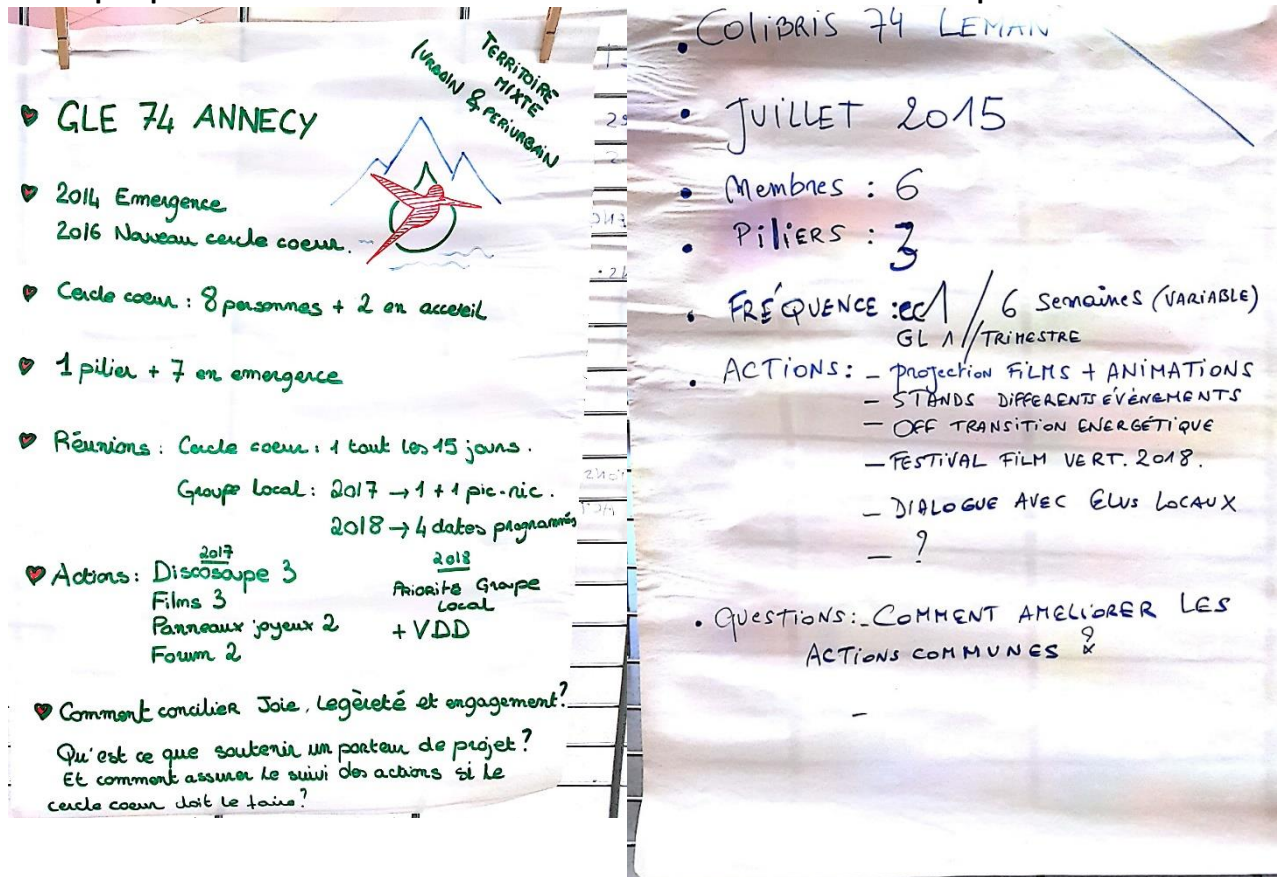 TERRITOIRE
MIXTE
(URBAIN & PERIURBAIN
GLE 74 ANNECY
2014 Emergence
2016 Nouveau cercle coeur.
Cercle coeur : 8 personnes + 2 en acceuil
1 pilier + 7 en emergence
Réunions : Cercle coeur : 1 tout les 15 jours.
Groupe local : 2017 → 1 + 1 pic-nic.
2018 → 4 dates programmés
Actions :
2017
Discosoupe 3
Films 3
Panneaux joyeux 2
Forum 2
2018
PRIORITÉ Groupe
Local
+ VDD
Comment concilier Joie, Legèreté et engagement?
Qu'est ce que soutenir un porteur de projet?
Et comment assurer le suivi des actions si le
cercle coeur doit le faire?
COLIBRIS 74 LEMAN
JUILLET 2015
Membres : 6
PILIERS : 3
FRÉQUENCE : cc1 / 6 semaines (VARIABLE)
GL 1 // TRIMESTRE
ACTIONS : - PROJECTION FILMS + ANIMATIONS
- STANDS DIFFERENTS ÉVÉNEMENTS
- OFF TRANSITION ENERGÉTIQUE
- FESTIVAL FILM VERT. 2018.
- DIALOGUE AVEC ELUS LOCAUX
- ?
QUESTIONS : - COMMENT AMELIORER LES
ACTIONS COMMUNES ?
-